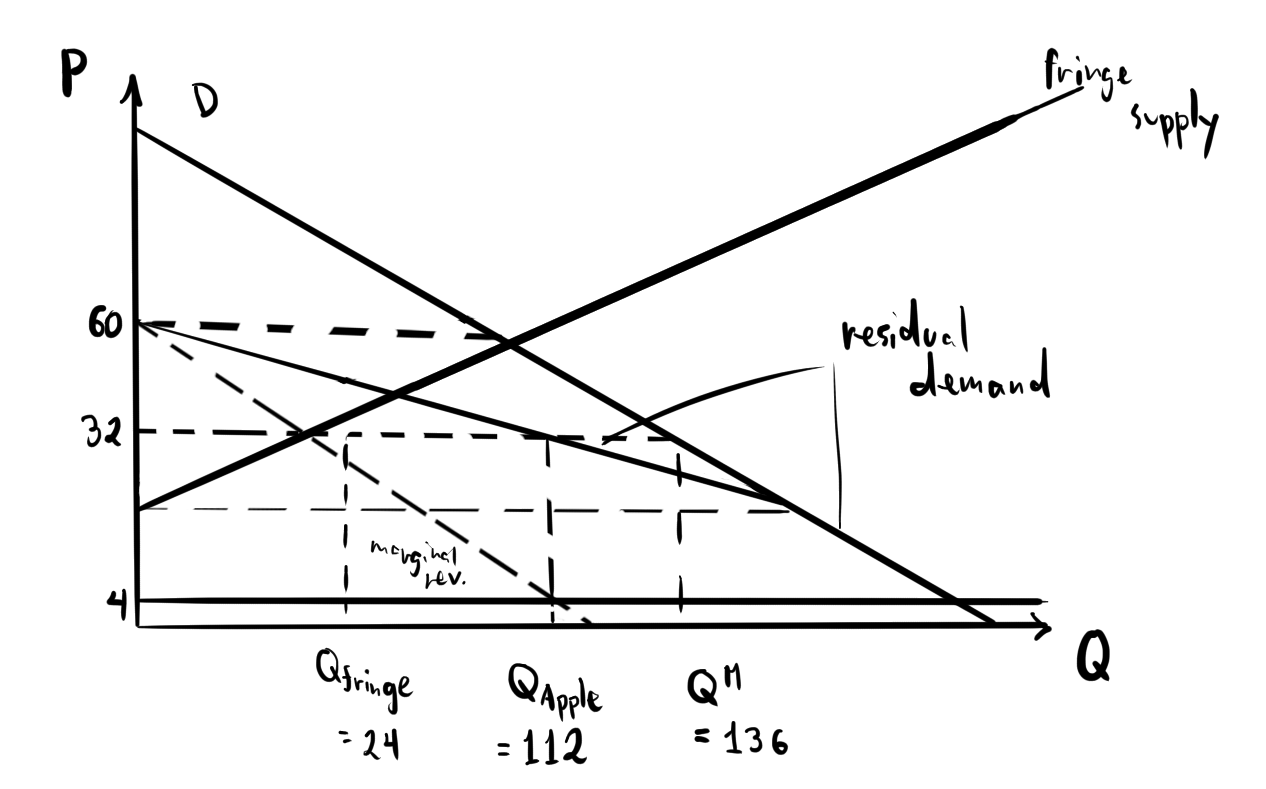 P
D
fringe
supply
60
residual
demand
32
marginal
rev.
4
Q
Qfringe
= 24
QApple
= 112
Qᴹ
= 136